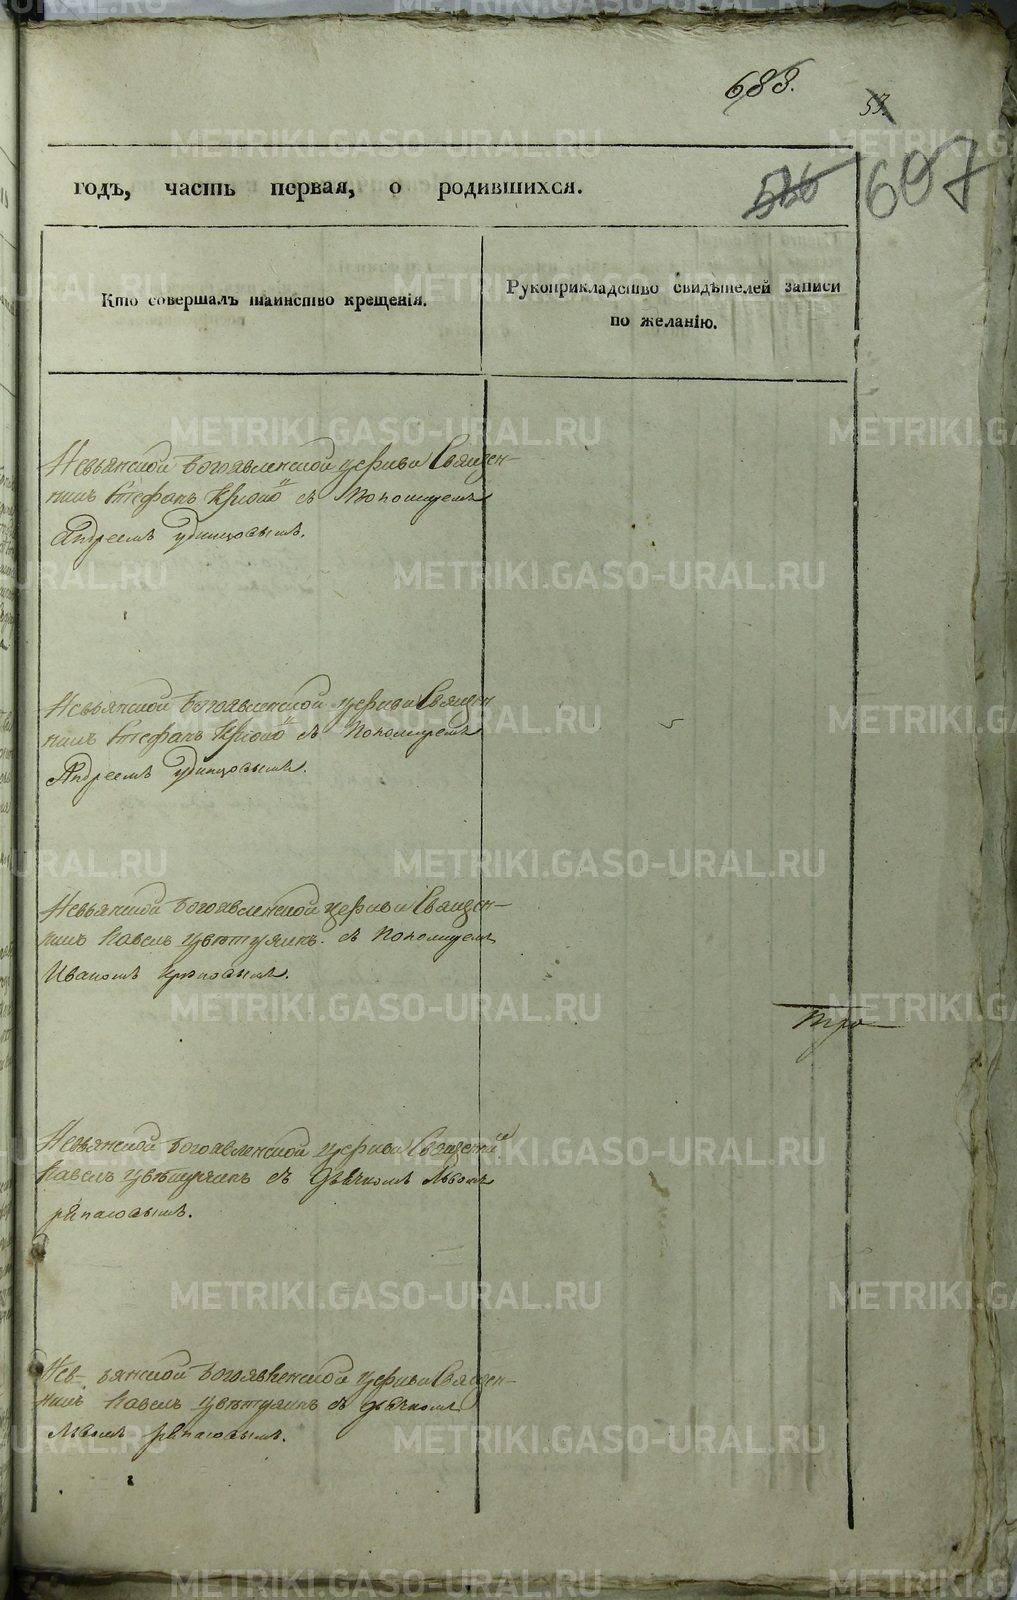 688.
53.
536 607
годъ, часть первая, о родившихся.
Кто совершалъ таинство крещенія.
Рукоприкладство свидѣтелей записи
по желанію.
Невьянской Богоявленской церкви Священ-
никъ Стефанъ с Пономаремъ
Андреемъ Удинцовымъ.
Невьянской Богоявленской церкви Священ
никъ Стефанъ съ Пономаремъ
Андреемъ Удинцовымъ.
Невьянской Богоявленской церкви Священ-
никъ Павелъ Цвѣтухинъ съ Пономаремъ
Иваномъ
Невьянской Богоявленской церкви
Павелъ Цвѣтухинъ съ дьячкомъ Львомъ
Невьянской Богоявленской церкви Священ-
никъ Павелъ Цвѣтухинъ съ дьячкомъ
Львомъ
METRIKI.GASO-URAL.RU